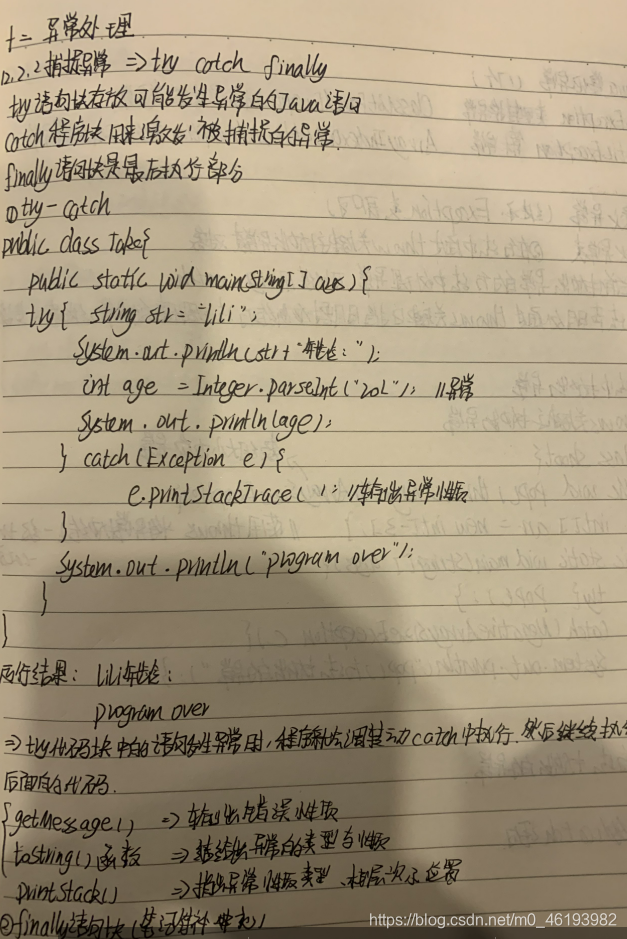 十二 异常处理
12.2.2 捕捉异常 => try catch finally
try语句块存放可能发生异常的Java语句
catch程序块用来激发被捕捉的异常.
finally语句块是最后执行部分
① try-catch
public class Take{
public static void main(String[] args){
try{ string str = "lili";
System.out.println(str+"年龄:");
int age = Integer.parseInt("20L"); //异常
System.out.println(age);
} catch(Exception e){
e.printStackTrace( ); //输出异常性质
}
System.out.println("program over");
}
}
运行结果: lili年龄:
program over
=> try代码块中的语句发生异常时,程序就会调转动catch中执行.然后继续执行
后面的代码.
{getMessage() => 输出错误性质
toString()函数 => 给出异常的类型与性质
printStack() => 指出异常性质类型、栈层次、位置
② finally语句块
https://blog.csdn.net/m0_46193982